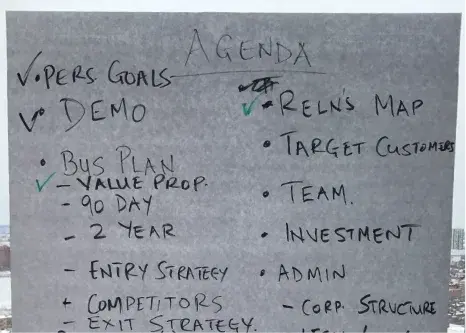 AGENDA
PERS. GOALS
DEMO
BUS PLAN
- VALUE PROP.
- 90 DAY
- 2 YEAR
- ENTRY STRATEGY
- COMPETITORS
- EXIT STRATEGY.
RELN'S MAP
TARGET CUSTOMERS
TEAM.
INVESTMENT
ADMIN
- CORP. STRUCTURE